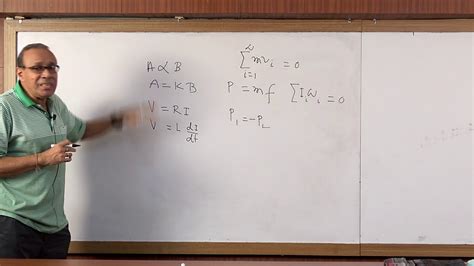 A ∝ B
A = K B
V = R I
V = L dI/dt
∑ᵢ₌₁² mvᵢ = 0
P = mf
∑Iᵢωᵢ = 0
P₁ = -P₂